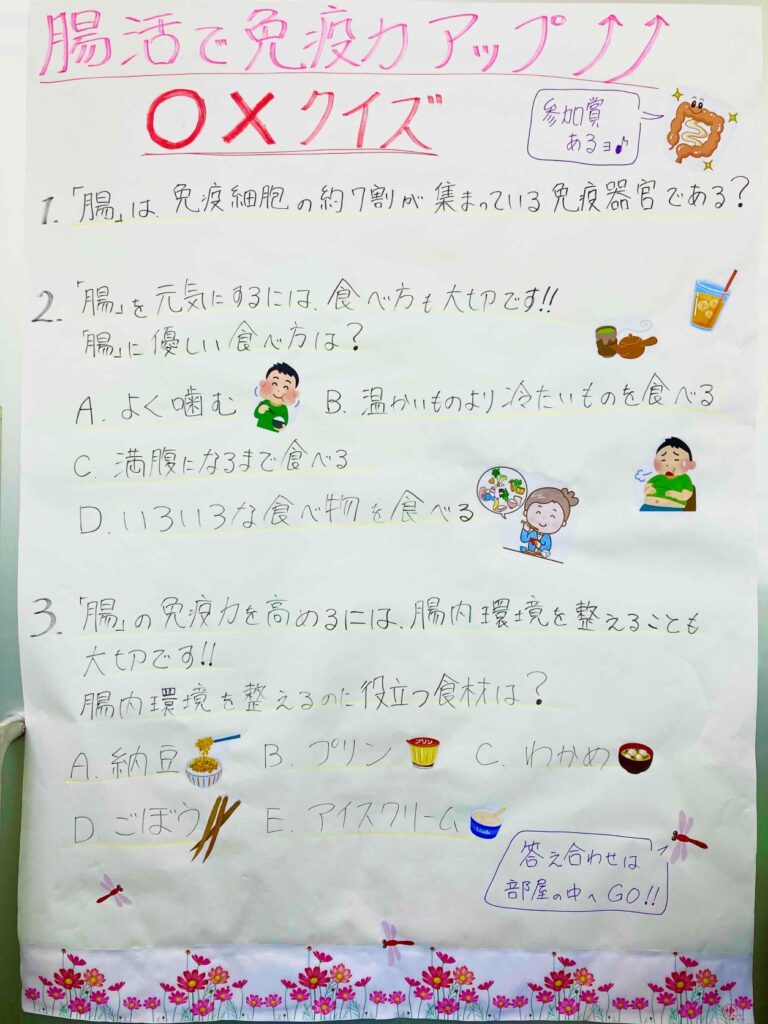 腸活で免疫力アップ↑↑
○×クイズ
参加賞
あるヨ♪
1. 「腸」は、免疫細胞の約7割が集まっている免疫器官である？
2. 「腸」を元気にするには、食べ方も大切です!!
「腸」に優しい食べ方は？
A. よく噛む B. 温かいものより冷たいものを食べる
C. 満腹になるまで食べる
D. いろいろな食べ物を食べる
3. 「腸」の免疫力を高めるには、腸内環境を整えることも
大切です!!
腸内環境を整えるのに役立つ食材は？
A. 納豆 B. プリン プリン C. わかめ
D. ごぼう E. アイスクリーム
答え合わせは
部屋の中へGO!!